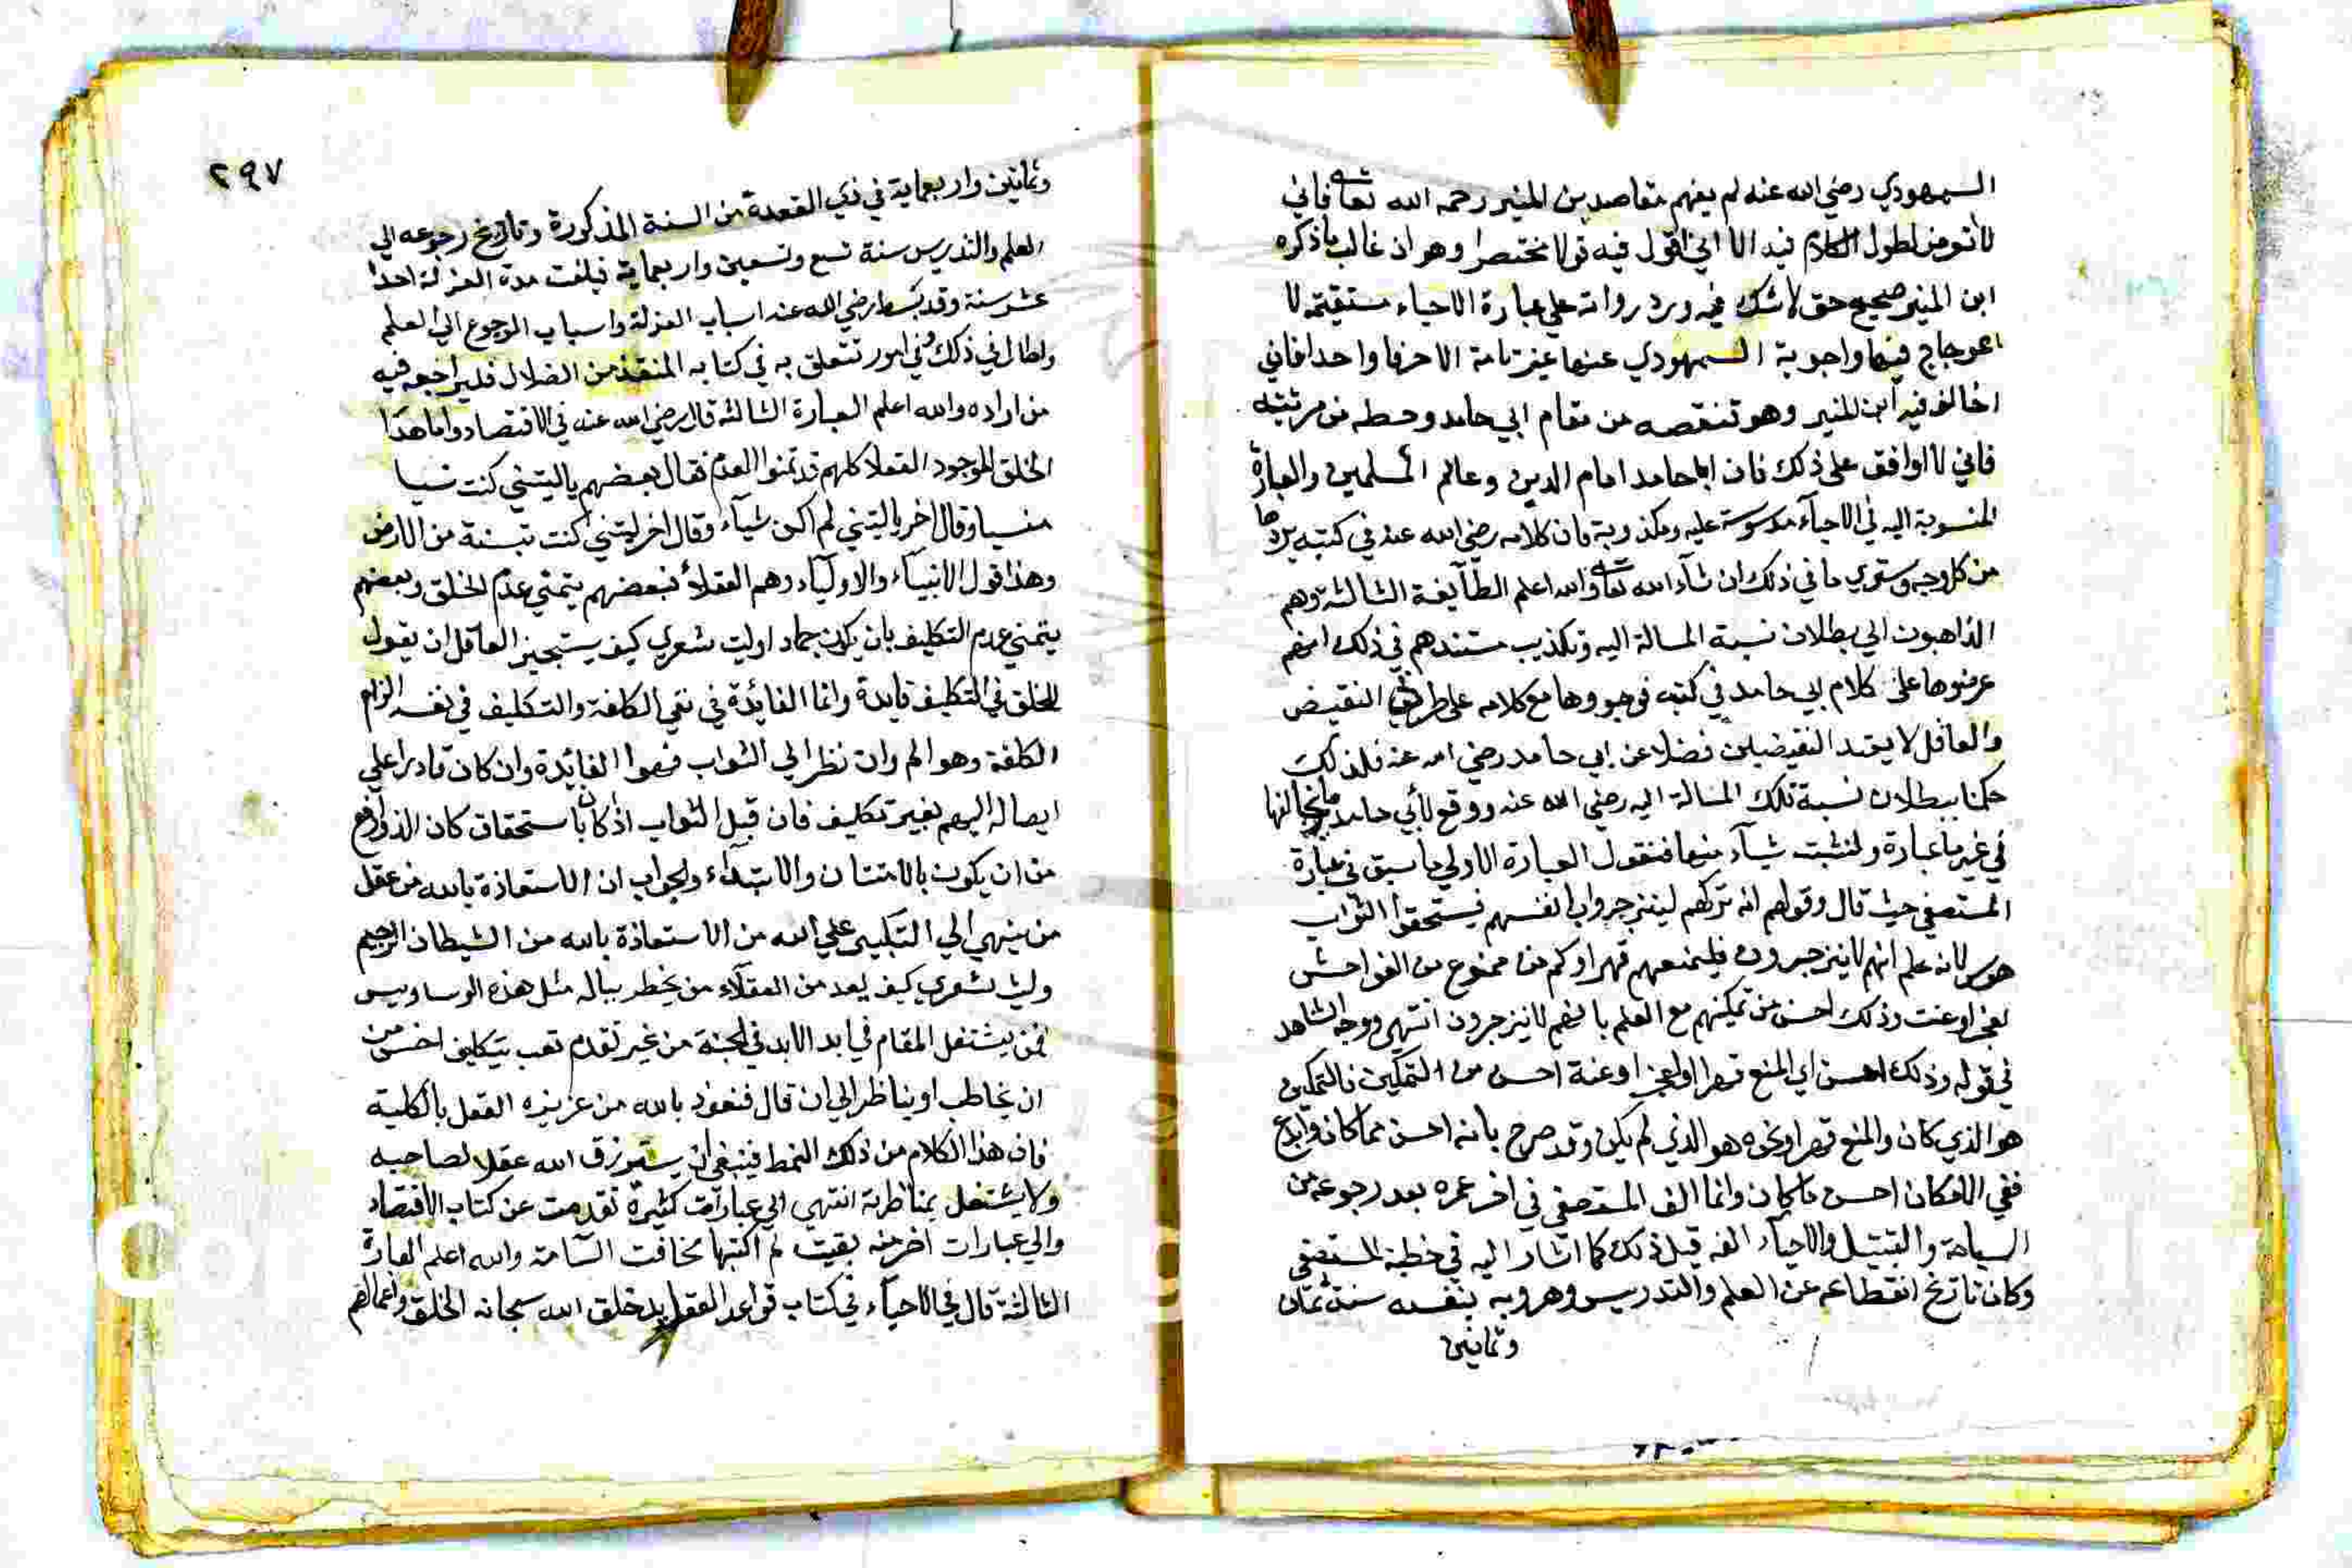 السمهودي رضي الله عنه لم يفهم مقاصد بن المنير رحمه الله تعالى فاني
لا اتعرض لطول الكلام فيه الا اني اقول فيه قولا مختصرا وهو ان غالب ما ذكره
ابن المنير صحيح حق لا شك فيه وردوداته على عبارة الاحياء مستقيمة لا
اعوجاج فيها واجوبة السمهودي عنها غير تامة الا حرفا واحدا فاني
اخالف فيه ابن المنير وهو تنقصه من مقام ابي حامد وحطه من مرتبته
فاني لا اوافق على ذلك فان ابا حامد امام الدين وعالم المسلمين والعبارة
المنسوبة اليه في الاحياء مدسوسة عليه ومكذوبة فان كلامه رضي الله عنه في كتبه يردها
من كل وجه وسترى ما في ذلك ان شاء الله تعالى والله اعلم الطآيفة الثالثة وهم
الذاهبون الي بطلان نسبة المسالة اليه وتكذيب مستندهم في ذلك انهم
عرضوها على كلام ابي حامد في كتبه فوجدوها مع كلامه على طرفي النقيض
والعاقل لا يعتقد النقيضين فضلا عن ابي حامد رضي الله عنه فلذلك
حكمنا ببطلان نسبة تلك المسالة اليه رضي الله عنه ووقع لابي حامد ما يخالفها
في غير ما عبارة ولنثبت شيآء منها فنقول العبارة الاولي ما سبق في عبارة
المستصفي حيث قال وقولهم انه تركهم لينزجروا بانفسهم فيستحقوا الثواب
هوس لانه علم انهم لا ينزجرون فليمنعهم قهرا وكم من ممنوع من الفواحش
لعجز او عنت وذلك احسن من تمكينهم مع العلم بانهم لا ينزجرون انتهى ووجه الشاهد
في قوله وذلك احسن اي المنع قهرا او لعجز او عنة احسن من التمكين فالتمكين
هو الذي كان والمنع قهرا ونحوه هو الذي لم يكن وقد صرح بانه احسن مما كان وابدع
ففي الامكان احسن مما كان وانما الف المستصفي في اخر عمره بعد رجوعه من
السياحة والتبتيل والاحيآء الفه قبل ذلك كما اشار اليه في خطبة المستصفى
وكان تاريخ انقطاعه عن العلم والتدريس وهروبه بنفسه سنة ثمان
وثمانين
٢٩٧
وثمانين واربعماية في ذي القعدة من السنة المذكورة وتاريخ رجوعه الي
العلم والتدريس سنة تسع وتسعين واربعماية فبلغت مدة العزلة احدا
عشر سنة وقد بسط رضي الله عنه اسباب العزلة واسباب الرجوع الي العلم
واطال في ذلك وفي امور تتعلق به في كتابه المنقذ من الضلال فليراجعه فيه
من اراده والله اعلم العبارة الثالثة قال رضي الله عنه في الاقتصاد واما هذا
الخلق الموجود العقلا كلهم قد تمنوا العدم فقال بعضهم ياليتني كنت نسيا
منسيا وقال اخر ياليتني لم اكن شيآء وقال اخر ليتني كنت تبنة من الارض
وهذا قول الانبيآء والاوليآء وهم العقلاء فبعضهم يتمنى عدم الخلق وبعضهم
يتمني عدم التكليف بان يكون جمادا وليت شعري كيف يستجيز العاقل ان يقول
للخلق في التكليف فايدة وانما الفائدة في نفي الكلفة والتكليف في نفسه الزام
الكلفة وهو الم وان نظر الي الثواب فهو الفايدة وان كان قادرا علي
ايصاله اليهم بغير تكليف فان قيل الثواب اذا كان باستحقاق كان الذ وارفع
من ان يكون بالامتنان والابتدآء والجواب ان الاستعاذة بالله من عقل
من ينتهي الي التكبر علي الله من الاستعاذة بالله من الشيطان الرجيم
وليت شعري كيف يعد من العقلآء من يخطر بباله مثل هذه الوساويس
فمن يستثقل المقام في ابد الابد في الجنة من غير تقدم تعب بتكليف اخس من
ان يخاطب او يناظر الي ان قال فنعوذ بالله من عزيزه العقل بالكلية
فان هذا الكلام من ذلك النمط فينبغي ان يسترزق الله عقلا لصاحبه
ولا يشتغل بمناظرته انتهى الي عبارات كثيرة تقدمت عن كتاب الاقتصاد
والي عبارات اخر منه بقيت لم اكتبها مخافت السآمة والله اعلم العبارة
الثالثة قال في الاحيآء في كتاب قواعد العقايد خلق الله سبحانه الخلق واعمالهم